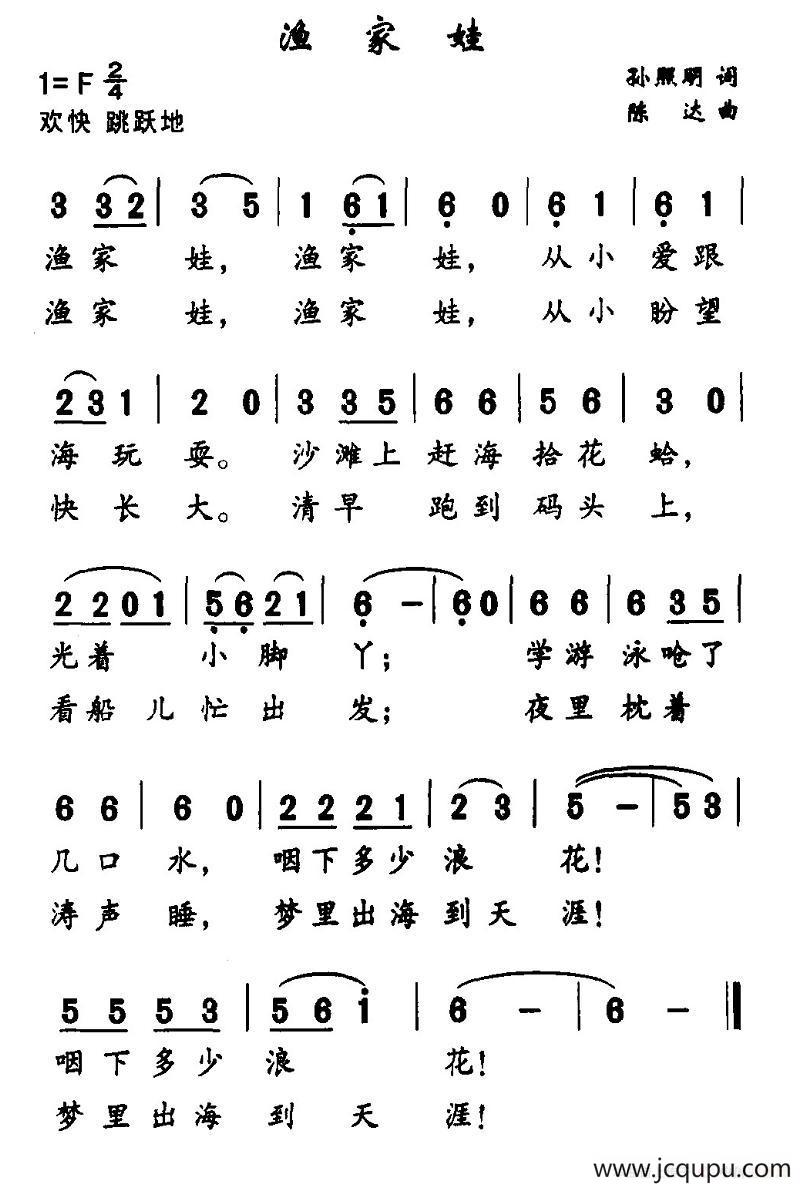 渔家娃
1=F 2/4
孙照明 词
欢快 跳跃地
陈达曲
3 32 | 3 5 | 1 61 | 6 0 | 6 1 | 6 1 |
渔家 娃, 渔家 娃, 从小 爱跟
渔家 娃, 渔家 娃, 从小 盼望
23 1 | 2 0 | 3 35 | 6 6 | 5 6 | 3 0 |
海玩 耍。 沙滩上 赶海 拾花 蛤,
快长 大。 清早 跑到 码头 上,
22 01 | 56 21 | 6 - | 60 | 6 6 | 6 35 |
光着 小脚 丫; 学游 泳呛了
看船儿忙出 发; 夜里 枕着
6 6 | 6 0 | 22 21 | 2 3 | 5 - | 53 |
几口 水, 咽下多少 浪 花!
涛声 睡, 梦里出海 到天 涯!
55 53 | 56 i | 6 - | 6 - ‖
咽下多少 浪 花!
梦里出海 到 天 涯!
www.jcqupu.com